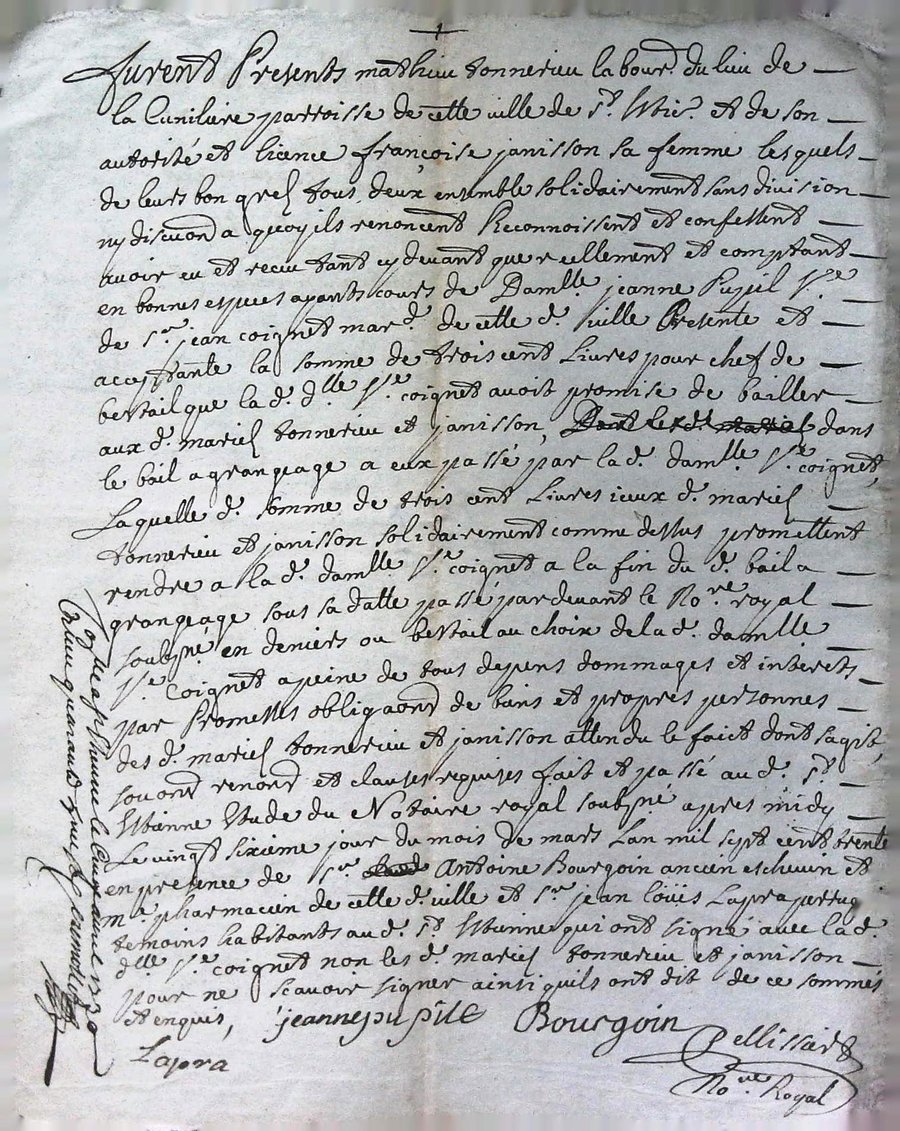 furent Presents mathieu tonnerieu labour.r du lieu de
la Cunilière parroisse de cette ville de st. Etie.e et de son
autorité et licence françoise janisson sa femme lesquels
de leurs bon gréz tous deux ensemble solidairement sans division
ny discuond a quoy ils renoncent Reconnoissent et confessent
avoir eu et receu tant cy devant que reellement et comptant
en bonnes espuces ayants cours de Damlle jeanne Pupil Ve
de sr jean coignet mard. de cette d. ville Presente et
acceptante la somme de trois cent Livres pour chef de
bestail que la d. dlle Ve coignet avoit promise de bailler
aux d. mariéz tonnerieu et janisson, dans
le bail a grangeage a eux passé par la d. damlle Ve coignet,
Laquelle d. somme de trois cent Livres iceux d. mariéz
tonnerieu et janisson solidairement comme dessus promettent
rendre a la d. damlle Ve coignet a la fin du d. bail a
grangeage sous sa datte passé pardevant le Nore royal
soubsné en deniers ou bestail au choix de la d. damlle
Ve coignet a peine de tous depens dommages et interets
par Promesses obligaons de biens et propres personnes
des d. mariéz tonnerieu et janisson attendu le faict dont sagit,
renons et clauses requises fait et passé au d. st
Etienne Etude du Notaire royal soubsné apres midy
Le vingt sixieme jour du mois de mars Lan mil sept cent trente
en presence de sr Antoine Bourgoin ancien eschevin et
me pharmacien de cette d. ville et sr jean Loüis Lapra
temoins habitants au d. st Etienne qui ont signé avec la d.
dlle Ve coignet non les d. mariéz tonnerieu et janisson
pour ne scavoir signer ainsi quils ont dit de ce sommés
et enquis, jeanne pupile Bourgoin
Lapra
Pellissier
Nore Royal